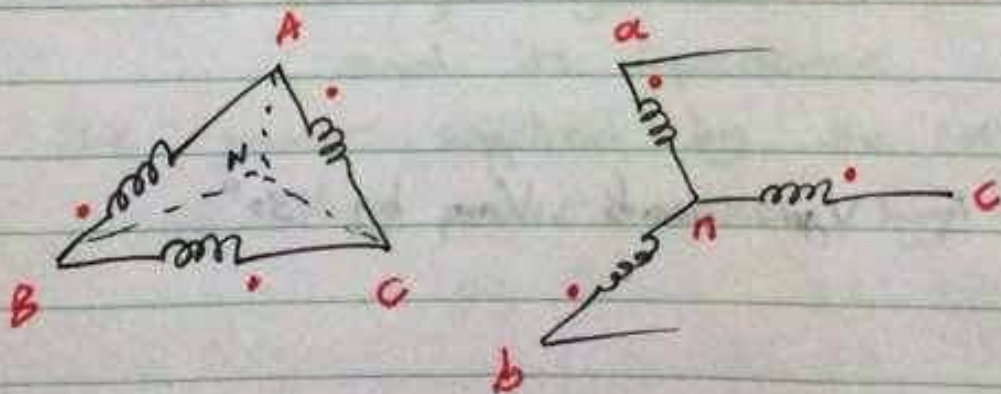 A
N
B
C
a
n
c
b